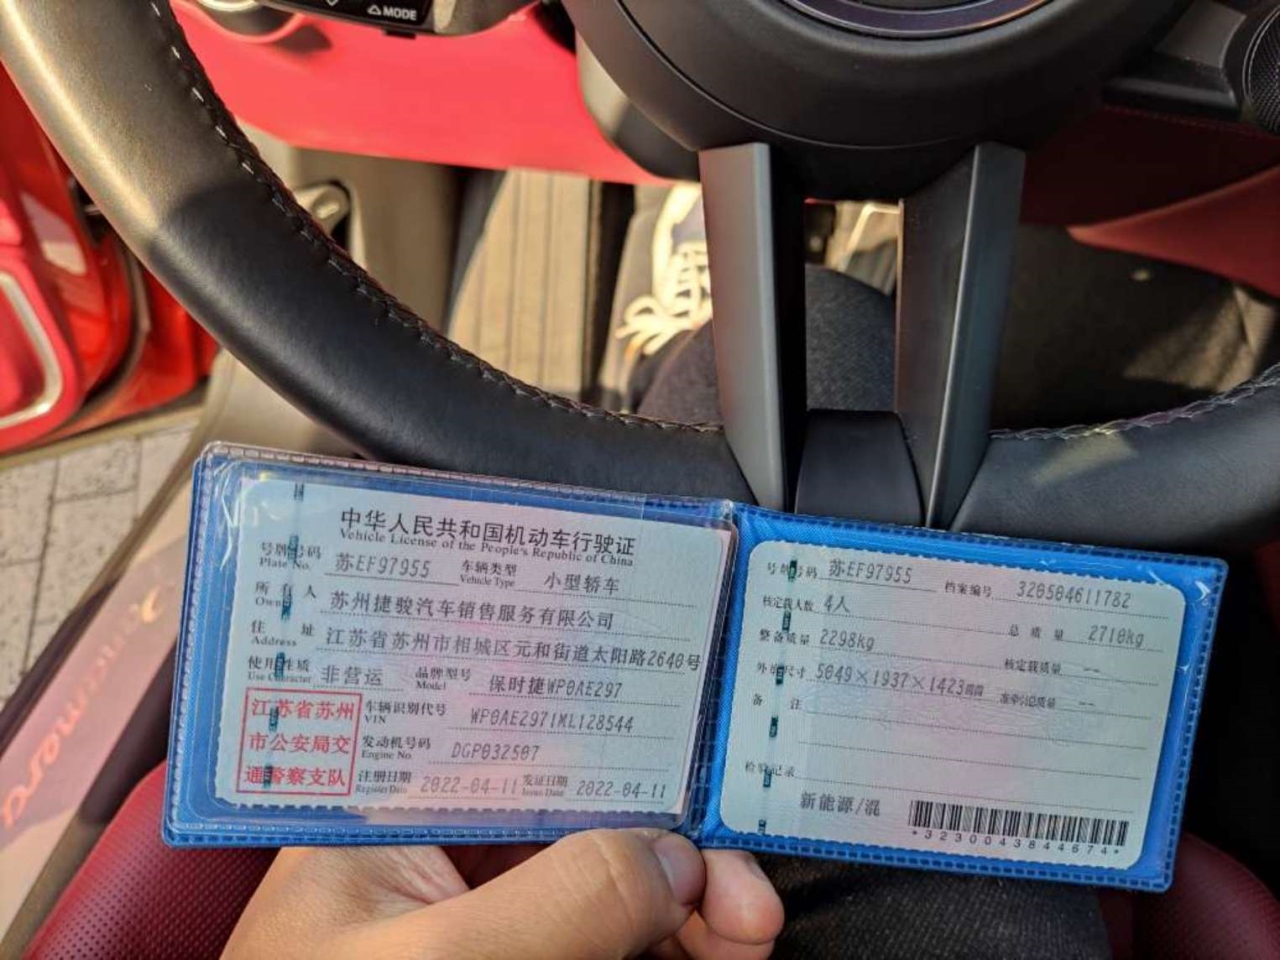 MODE
中华人民共和国机动车行驶证
Vehicle License of the People's Republic of China
号牌号码 苏EF97955 车辆类型 小型轿车
Plate No. Vehicle Type
所有人 苏州捷骏汽车销售服务有限公司
Owner
住址 江苏省苏州市相城区元和街道太阳路2640号
Address
使用性质 非营运 品牌型号 保时捷WP0AE297
Use Character Model
江苏省苏州
市公安局交
通警察支队
车辆识别代号 WP0AE2971ML128544
VIN
发动机号码 DGP032507
Engine No.
注册日期 2022-04-11 发证日期 2022-04-11
Register Date Issue Date
号牌号码 苏EF97955 档案编号 320504611782
核定载人数 4人 总质量 2710kg
整备质量 2298kg 核定载质量 --
外廓尺寸 5049×1937×1423mm 准牵引总质量 --
备注
检验记录
新能源/混
*3230043844674*
Panamera